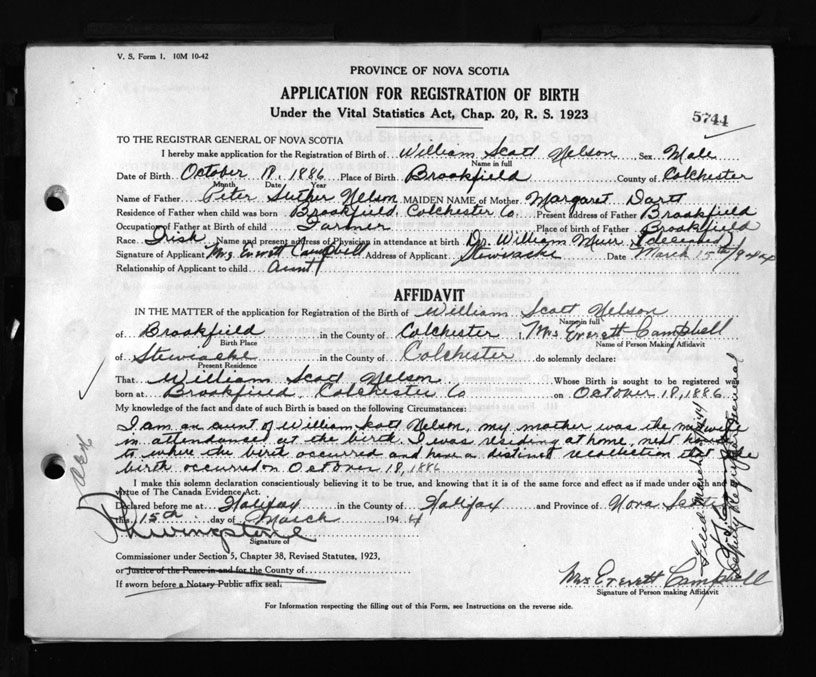 V. S. Form 1. 10M 10-42
PROVINCE OF NOVA SCOTIA
APPLICATION FOR REGISTRATION OF BIRTH
Under the Vital Statistics Act, Chap. 20, R. S. 1923
5744
TO THE REGISTRAR GENERAL OF NOVA SCOTIA
I hereby make application for the Registration of Birth of William Scott Nelson Sex Male
Name in full
Date of Birth October 18, 1886 Place of Birth Brookfield County of Colchester
Month Date Year
Name of Father Peter Suther Nelson MAIDEN NAME of Mother Margaret Dart
Residence of Father when child was born Brookfield, Colchester Co. Present address of Father Brookfield
Occupation of Father at Birth of child Farmer Place of birth of Father Brookfield
Race Irish Name and present address of Physician in attendance at birth Dr. William Muir (deceased)
Signature of Applicant Mrs Everett Campbell Address of Applicant Stewiacke Date March 15th 1944
Relationship of Applicant to child Aunt
AFFIDAVIT
IN THE MATTER of the application for Registration of the Birth of William Scott Nelson
Name in full
of Brookfield in the County of Colchester, I Mrs Everett Campbell
Birth Place Name of Person Making Affidavit
of Stewiacke in the County of Colchester do solemnly declare:
Present Residence
That William Scott Nelson Whose Birth is sought to be registered was
born at Brookfield, Colchester Co on October 18, 1886
My knowledge of the fact and date of such Birth is based on the following Circumstances:
I am an aunt of William Scott Nelson, my mother was the midwife
in attendance at the birth. I was residing at home, next house
to where the birth occurred and have a distinct recollection that the
birth occurred on October 18, 1886
I make this solemn declaration conscientiously believing it to be true, and knowing that it is of the same force and effect as if made under oath and
virtue of The Canada Evidence Act.
Declared before me at Halifax in the County of Halifax and Province of Nova Scotia
this 15th day of March 1944
Signature of
Commissioner under Section 5, Chapter 38, Revised Statutes, 1923,
or Justice of the Peace in and for the County of
If sworn before a Notary Public affix seal.
Mrs Everett Campbell
Signature of Person making Affidavit
For Information respecting the filling out of this Form, see Instructions on the reverse side.
Deputy Registrar General